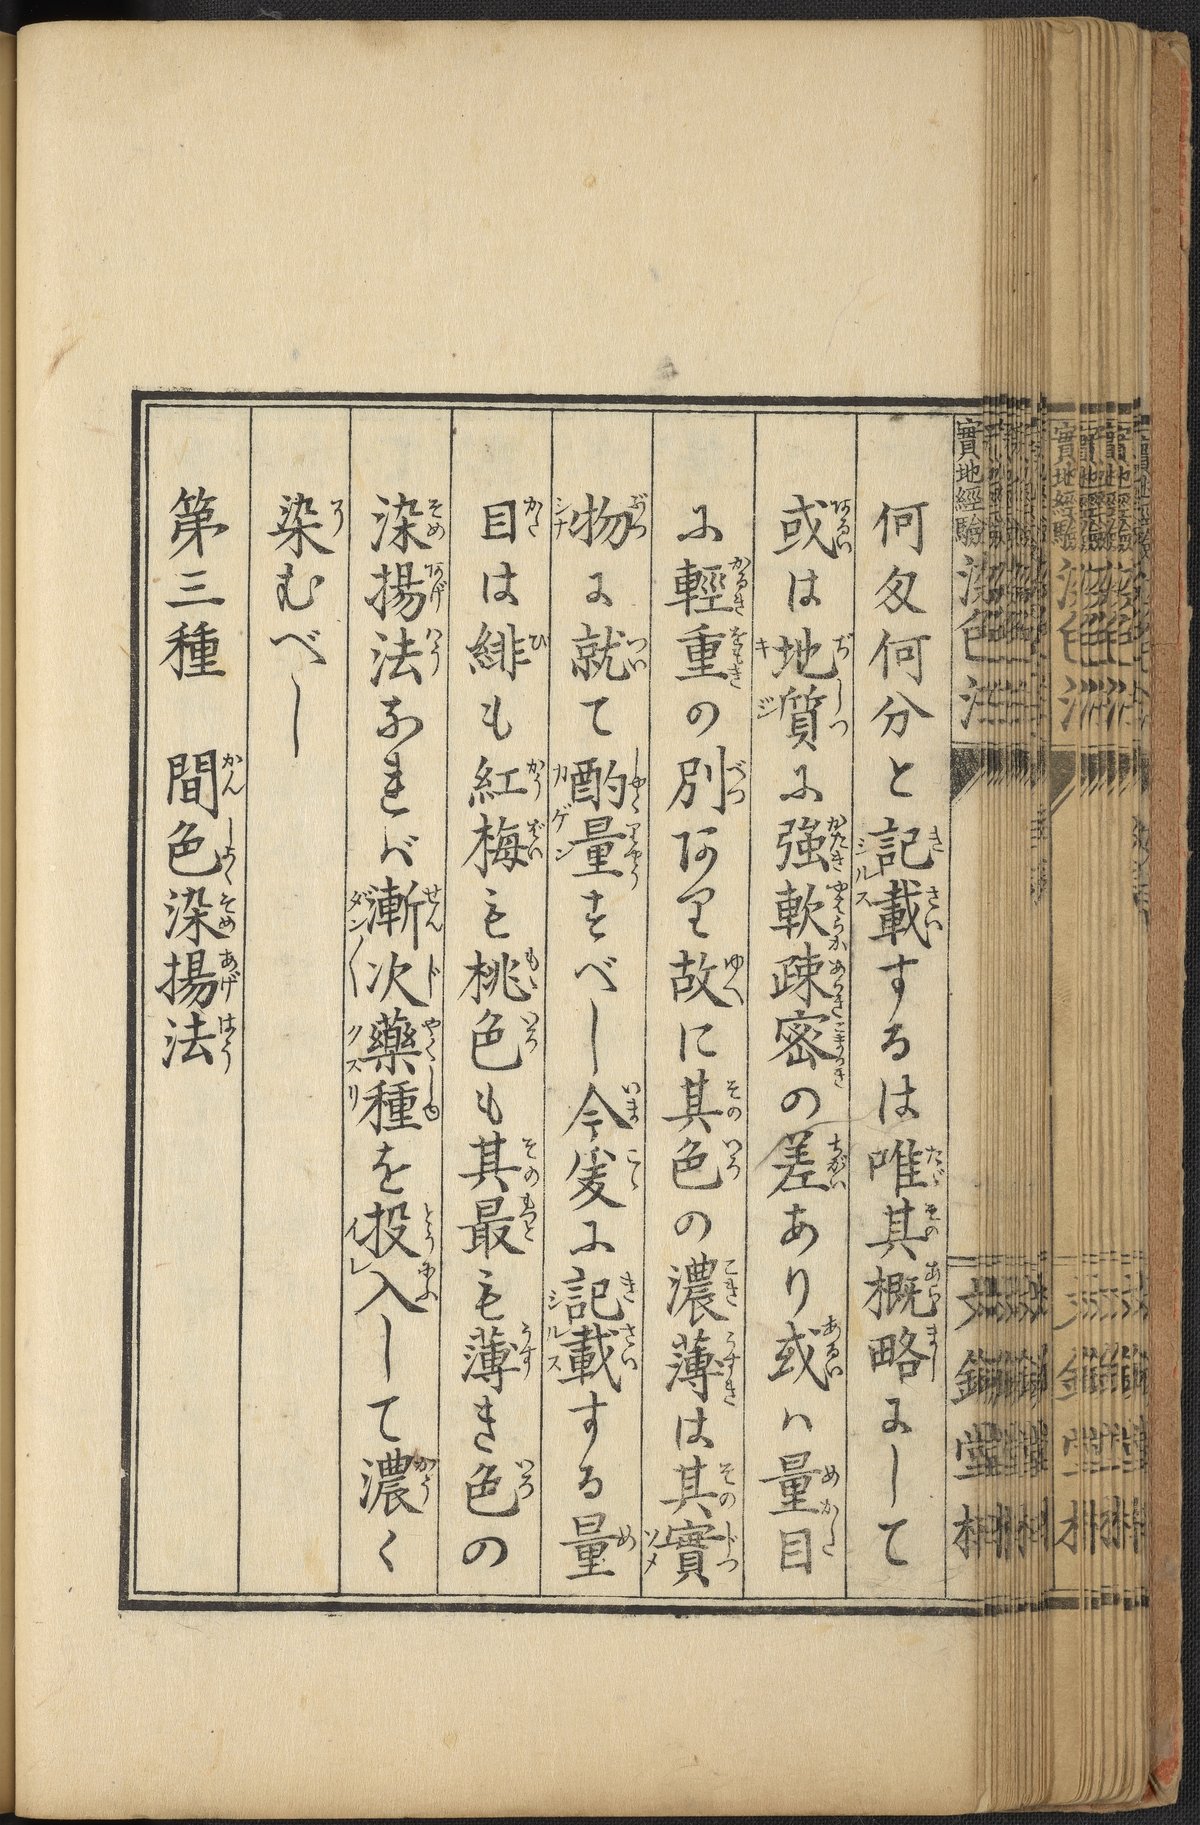 何匁何分と記載するは唯其概略にして
或は地質に強軟疎密の差あり或ハ量目
に輕重の別あり故に其色の濃薄は其實
物に就て酌量すべし今爰に記載する量
目は緋も紅梅も桃色も其最も薄き色の
染揚法なれバ漸次藥種を投入して濃く
染むべし
第三種　間色染揚法
實地經驗染色法